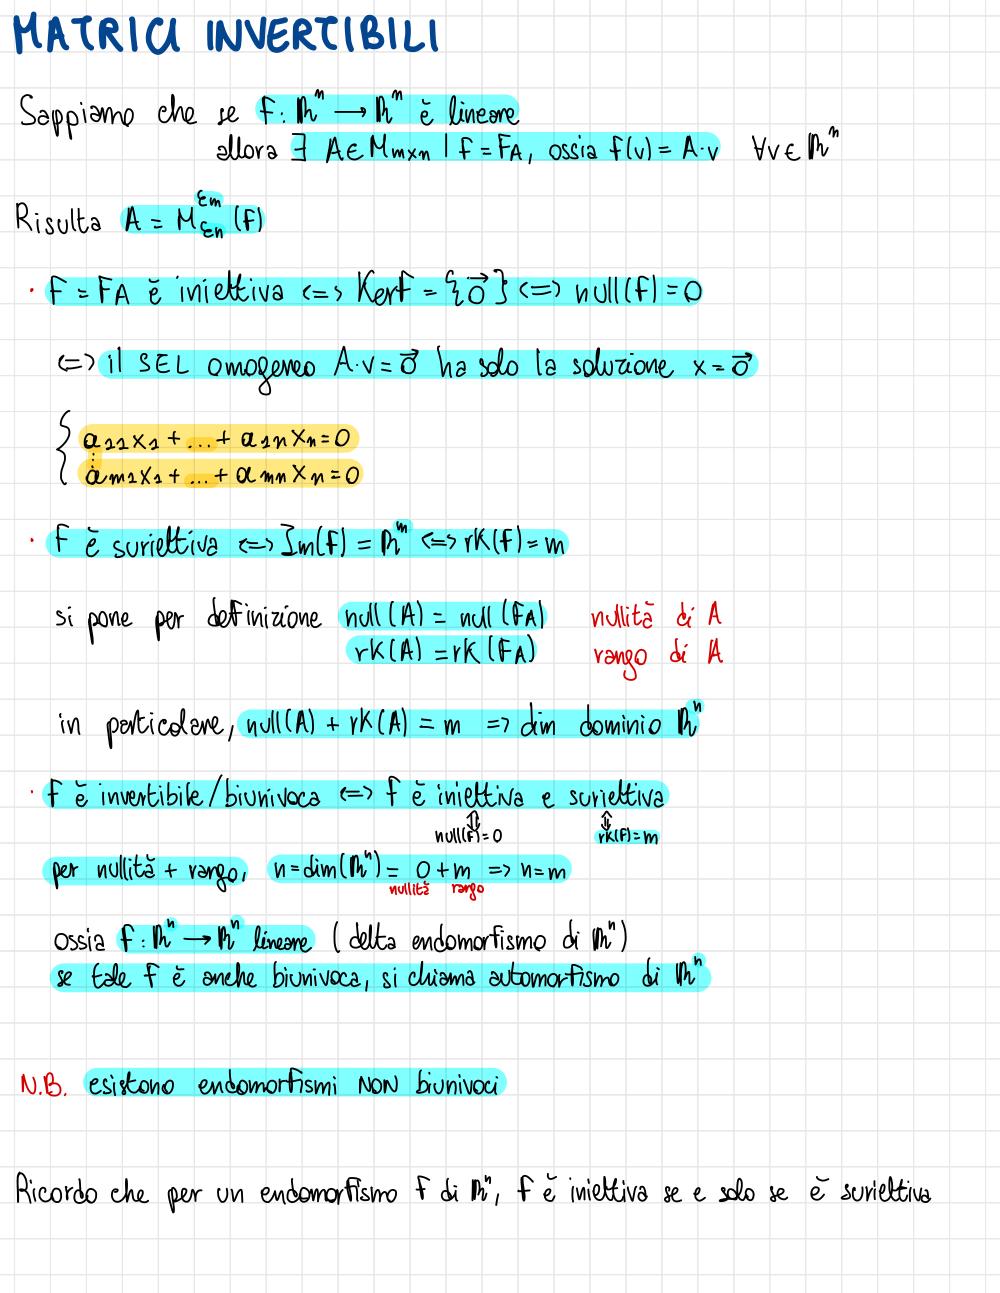 MATRICI INVERTIBILI
Sappiamo che se f: ℝⁿ → ℝⁿ è lineare
allora ∃ A ∈ Mmxn | f = FA, ossia f(v) = A·v ∀v ∈ ℝⁿ
Risulta A = M^εm_εn (f)
· f = FA è iniettiva <=> Kerf = {0⃗} <=> null(f) = 0
<=> il SEL omogeneo A·v = 0⃗ ha solo la soluzione x = 0⃗
{ a11x1 + ... + a1nxn = 0
⋮
am1x1 + ... + amnxn = 0
· f è suriettiva <=> Im(f) = ℝᵐ <=> rk(f) = m
si pone per definizione null(A) = null(FA) nullità di A
rk(A) = rk(FA) rango di A
in particolare, null(A) + rk(A) = m => dim dominio ℝⁿ
· f è invertibile/biunivoca <=> f è iniettiva e suriettiva
⇕ ⇕
null(f) = 0 rk(f) = m
per nullità + rango, n = dim(ℝⁿ) = 0 + m => n = m
nullità rango
ossia f: ℝⁿ → ℝⁿ lineare (detta endomorfismo di ℝⁿ)
se tale f è anche biunivoca, si chiama automorfismo di ℝⁿ
N.B. esistono endomorfismi NON biunivoci
Ricordo che per un endomorfismo f di ℝⁿ, f è iniettiva se e solo se è suriettiva